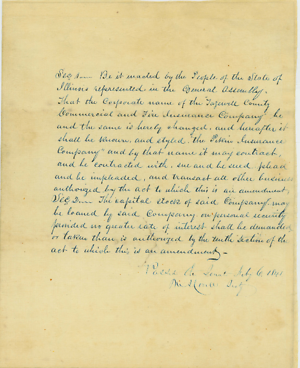 Sec 1 — Be it enacted by the People of the State of
Illinois represented in the General Assembly—
That the Corporate name of the Tazewell County
Commercial and Fire Insurance Company be
and the same is hereby changed, and hereafter it
shall be known and styled, the "Pekin Insurance
Company" and by that name it may contract,
and be contracted with, sue and be sued, plead
and be impleaded, and transact all other business
authorized by the act to which this is an amendment
Sec 2 — The capital stock of said Company, may
be loaned by said Company on personal security
provided no greater rate of interest shall be demanded
or taken than is authorized by the tenth section of the
act to which this is an amendment—